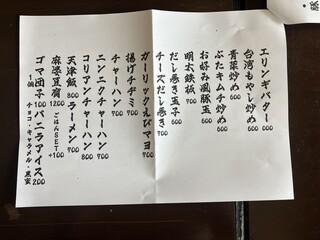 エリンギバター 600
台湾もやし炒め 600
青菜炒め 600
ぶたキムチ炒め 700
お好み風豚玉 600
明太鉄板 700
だし巻き玉子 600
チーズだし巻き 700
ガーリックえびマヨ 700
揚げチヂミ 700
チャーハン 700
ニンニクチャーハン 700
コリアンチャーハン 800
天津飯 800 ラーメン 700
麻婆豆腐 1200 ごはんSET +100
ゴマ団子 100 バニラアイス 200
1個 チョコ・キャラメル・黒蜜